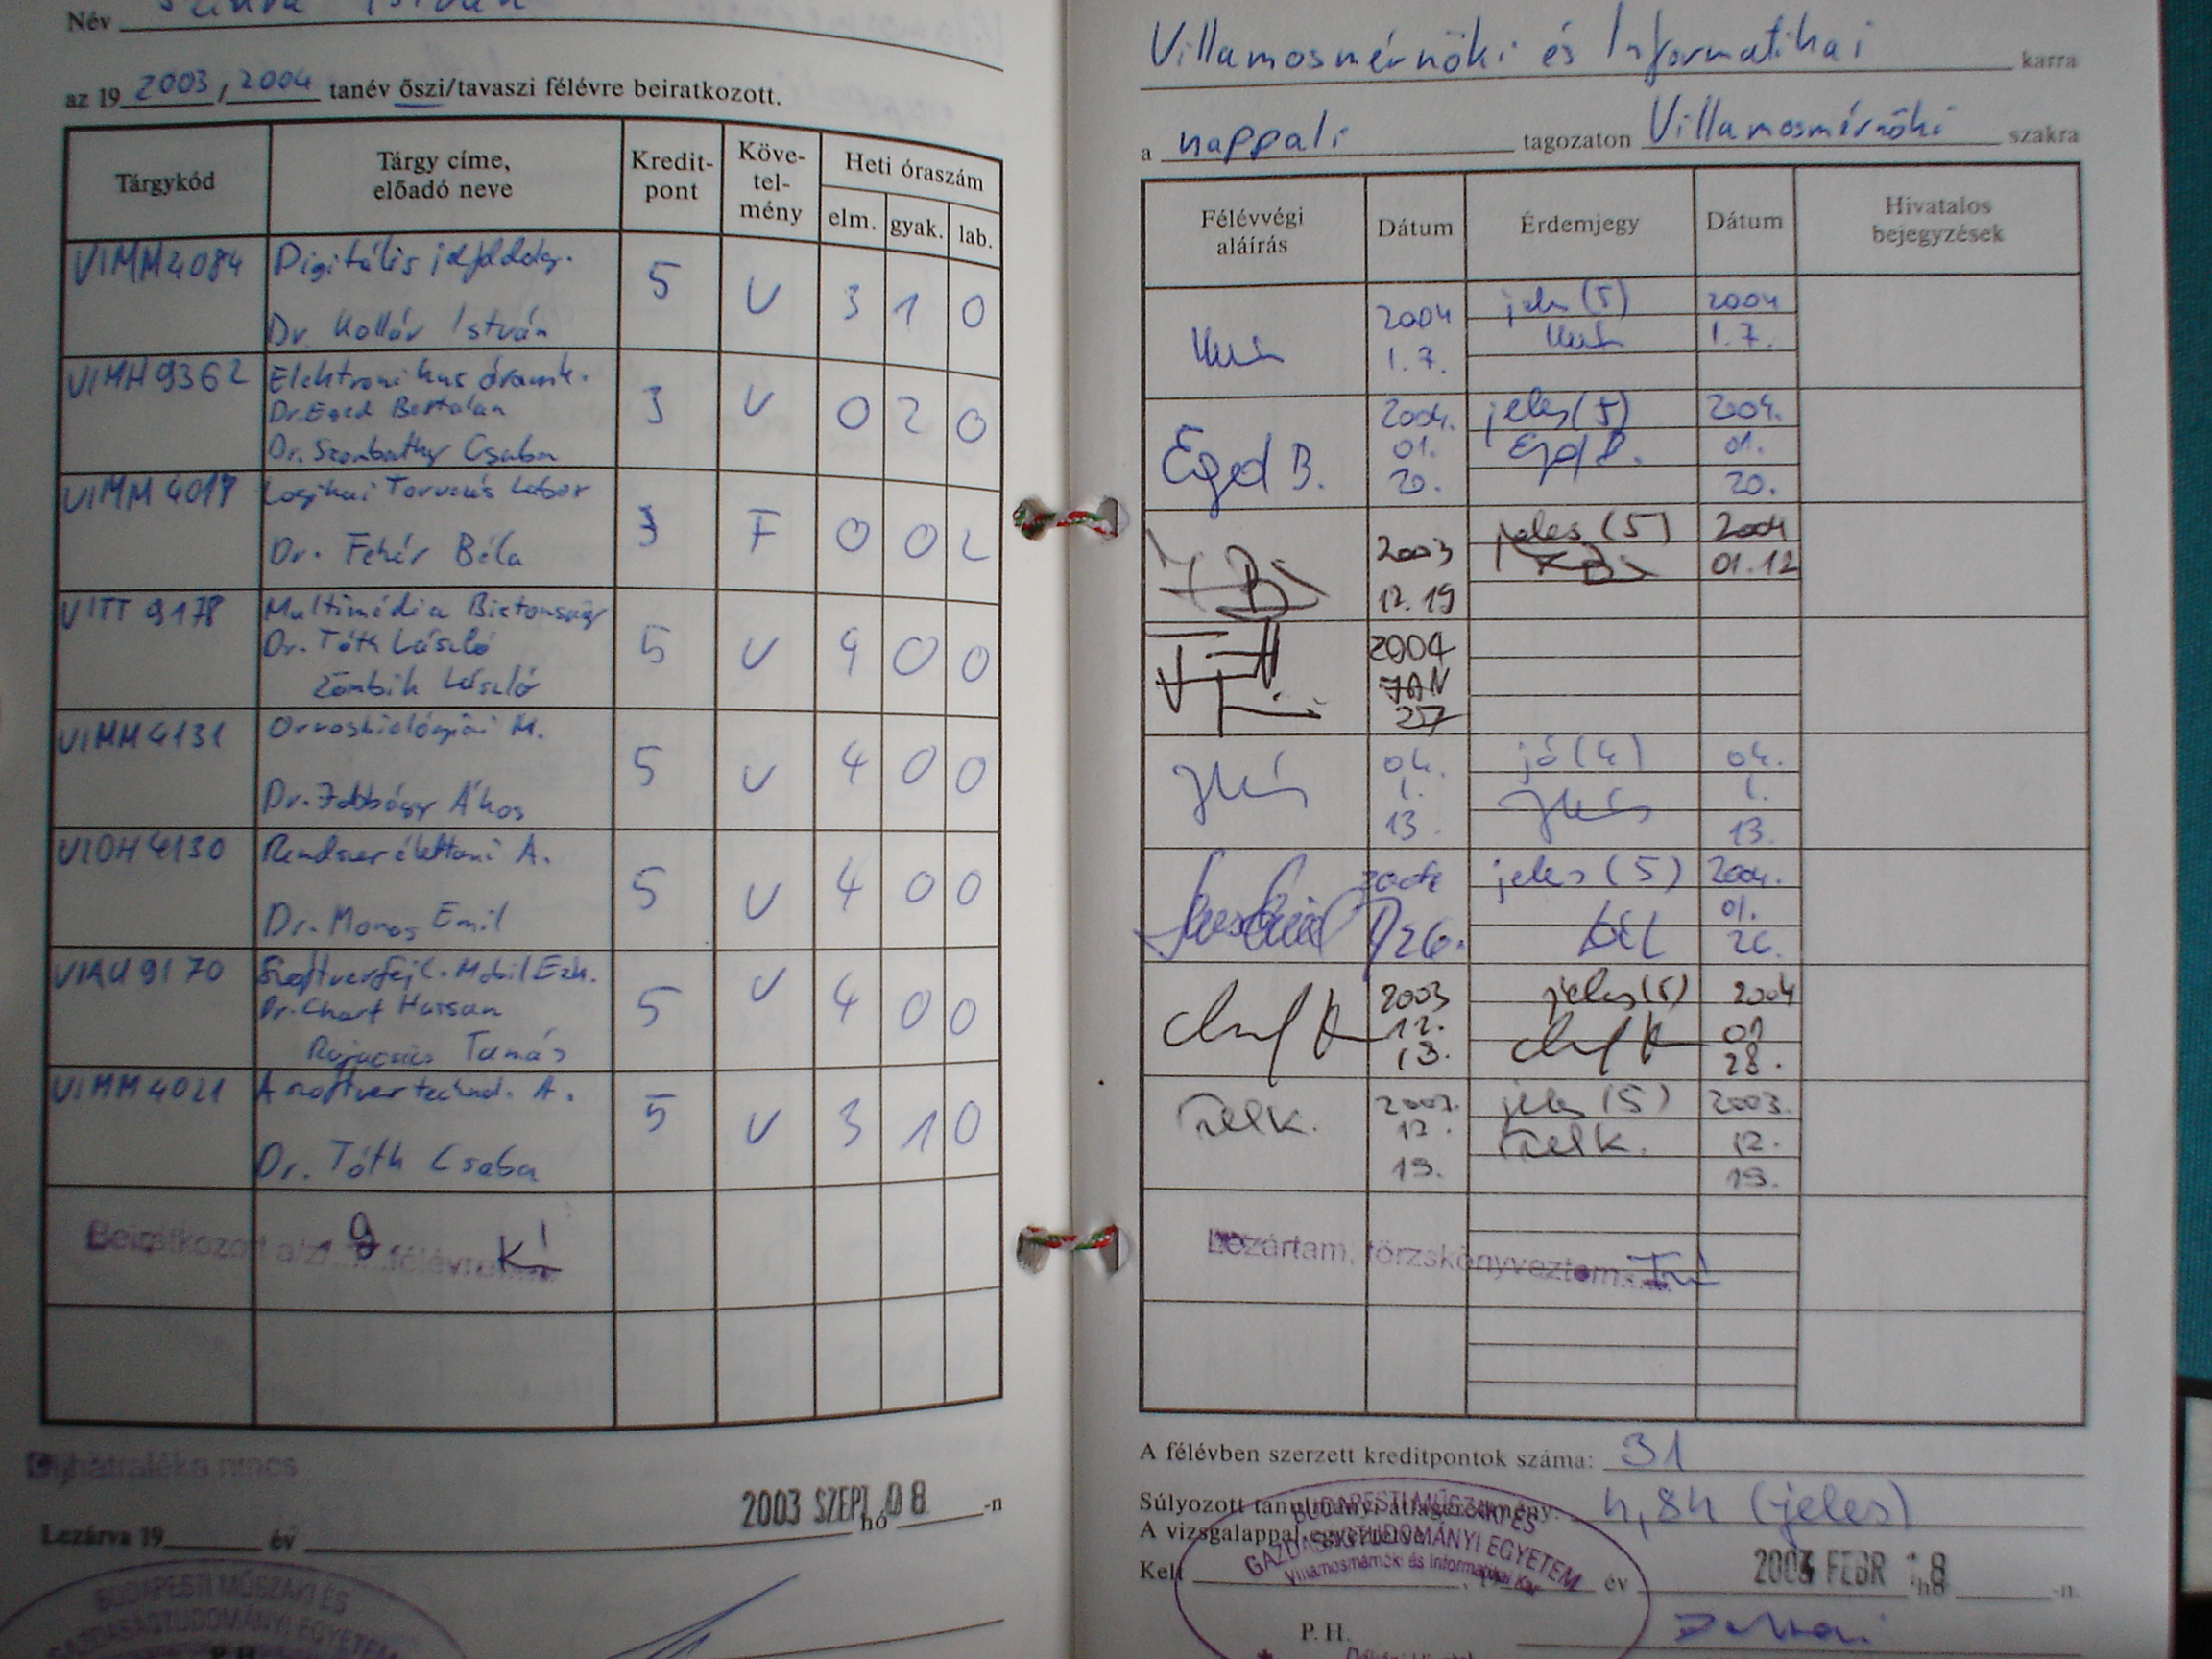 Név István
az 19 2003 / 2004 tanév őszi/tavaszi félévre beiratkozott.
Tárgykód
Tárgy címe,
előadó neve
Kredit-
pont
Köve-
tel-
mény
Heti óraszám
elm. gyak. lab.
VIMM4084 Digitális
Dr. Kollár István
5 V 3 1 0
VIMH9362 Elektronikus áramk.
Dr. Eged Bertalan
Dr. Szombathy Csaba
3 V 0 2 0
VIMM4017 Logikai Tervezés Labor
Dr. Fehér Béla
3 F 0 0 2
VITT9178 Multimédia Biztonság
Dr. Tóth László
Zömbik László
5 V 4 0 0
VIMM4131 Orvosbiológiai M.
Dr. Jobbágy Ákos
5 V 4 0 0
VIOH4130 Rendszerélettani A.
Dr. Monos Emil
5 V 4 0 0
VIAU9170 Szoftverfejl. Mobil Eszk.
Dr. Charf Hassan
Tamás
5 V 4 0 0
VIMM4021 A szoftver technol. A.
Dr. Tóth Csaba
5 V 3 1 0
Beiratkozott a(z) 9 félévre
Díjhátraléka nincs
2003 SZEPT. 08
Lezárva 19 év hó -n
BUDAPESTI MŰSZAKI ÉS
GAZDASÁGTUDOMÁNYI EGYETEM
P. H.
Villamosmérnöki és Informatikai karra
a nappali tagozaton Villamosmérnöki szakra
Félévvégi
aláírás
Dátum
Érdemjegy
Dátum
Hivatalos
bejegyzések
2004 1.7. jeles (5) 2004 1.7.
Eged B. 2004. 01. 20. jeles (5) Eged B. 2004. 01. 20.
2003 12.19 jeles (5) 2004 01.12
2004 JAN 27
04. 1. 13. jó (4) 04. 1. 13.
2004 jeles (5) 2004. 01. 26.
2003 12. 18. jeles (5) 2004 01 28.
2003. 12. 19. jeles (5) 2003. 12. 19.
Lezártam, törzskönyveztem
A félévben szerzett kreditpontok száma: 31
Súlyozott tanulmányi átlageredmény: 4,84 (jeles)
A vizsgalappal egyeztetve
Kelt év 2004 FEBR 18 hó -n.
BUDAPESTI MŰSZAKI ÉS
GAZDASÁGTUDOMÁNYI EGYETEM
Villamosmérnöki és Informatikai Kar
P. H.
Dékáni Hivatal